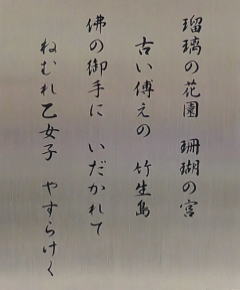 瑠璃の花園　珊瑚の宮
古い傳えの　竹生島
佛の御手に　いだかれて
ねむれ乙女子　やすらけく